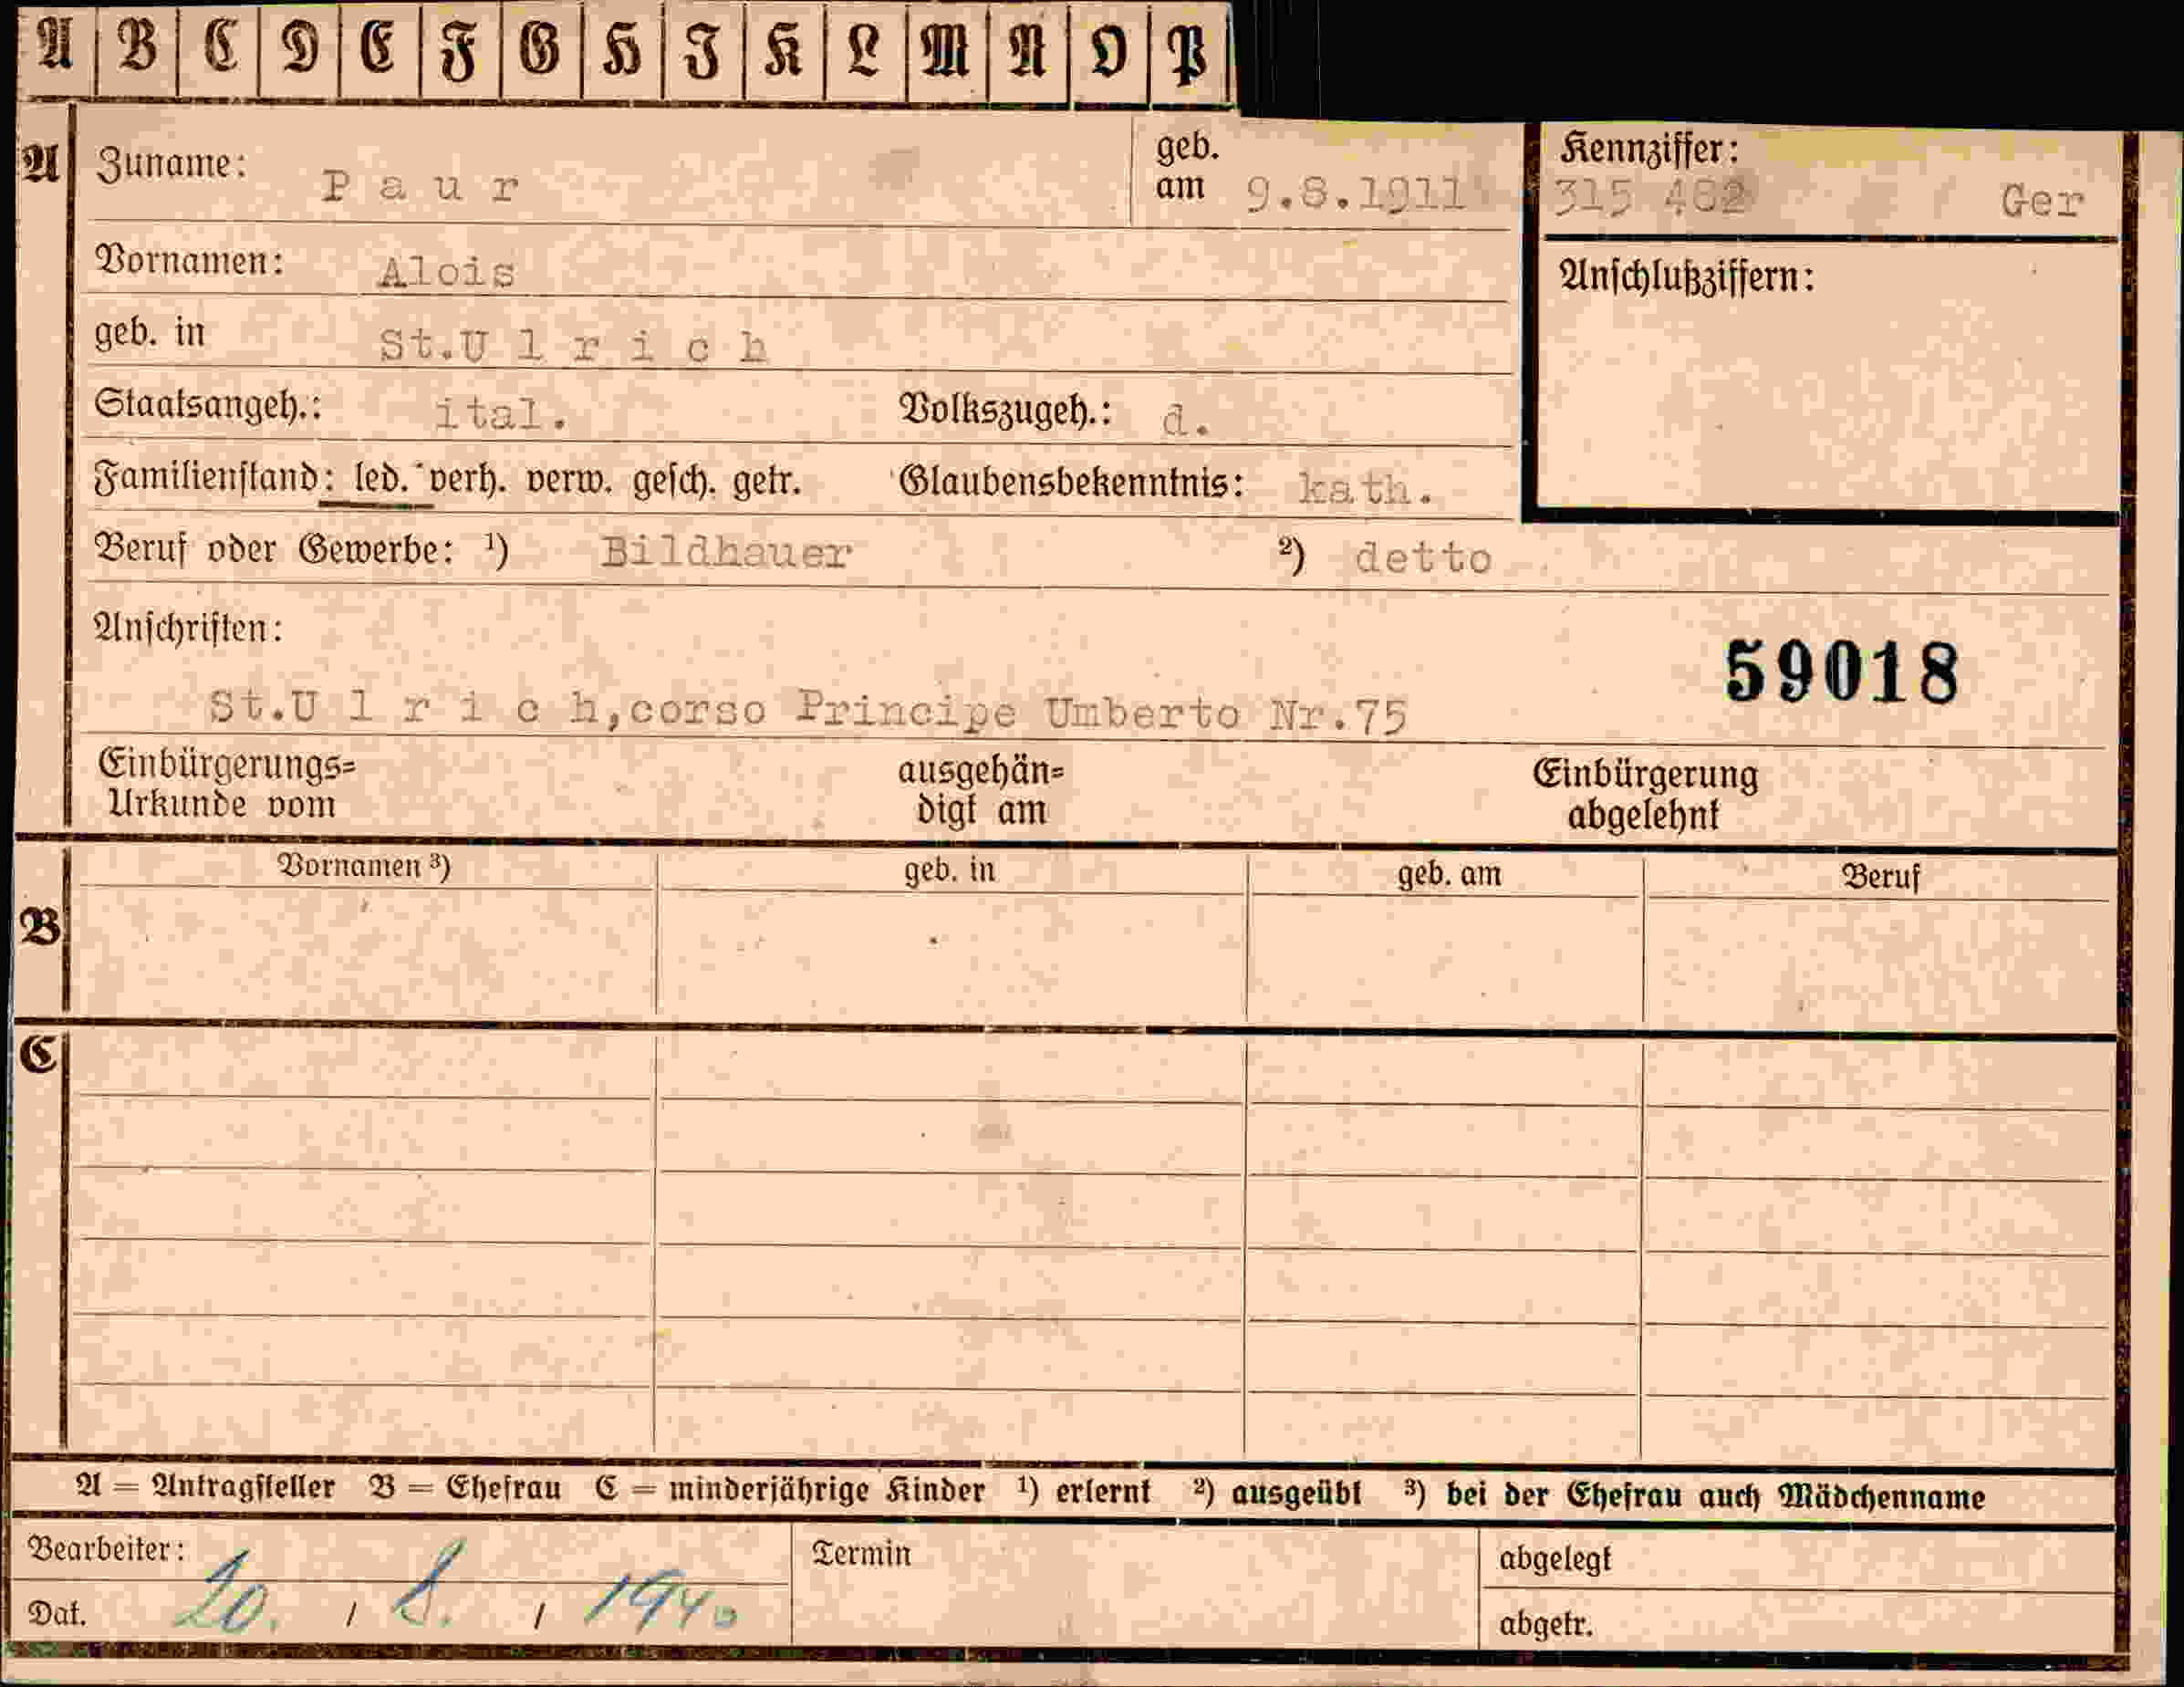 A B C D E F G H I K L M N O P
A Zuname: Paur geb. am 9.8.1911 Kennziffer: 315 482 Ger
Vornamen: Alois Anschlußziffern:
geb. in St.Ulrich
Staatsangeh.: ital. Volkszugeh.: d.
Familienstand: led. verh. verw. gesch. getr. Glaubensbekenntnis: kath.
Beruf oder Gewerbe: ¹) Bildhauer ²) detto
Anschriften:
59018
St.Ulrich,corso Principe Umberto Nr.75
Einbürgerungs= ausgehän= Einbürgerung
Urkunde vom digt am abgelehnt
Vornamen ³) geb. in geb. am Beruf
B
C
A = Antragsteller B = Ehefrau C = minderjährige Kinder ¹) erlernt ²) ausgeübt ³) bei der Ehefrau auch Mädchenname
Bearbeiter: Termin abgelegt
Dat. 20. / 8. / 1940 abgetr.